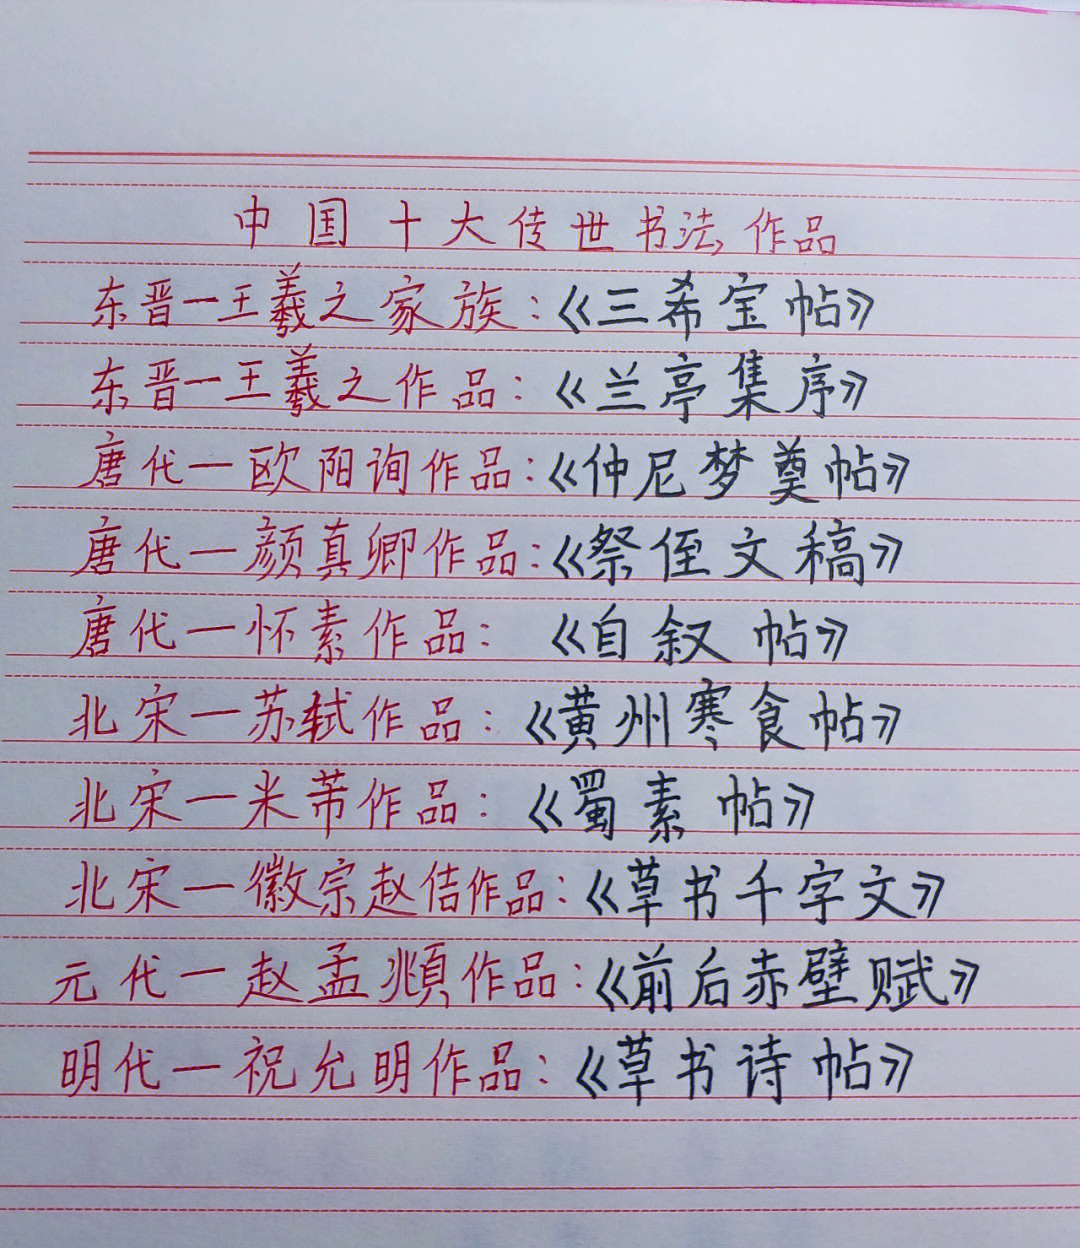 中国十大传世书法作品
东晋一王羲之家族:《三希宝帖》
东晋一王羲之作品:《兰亭集序》
唐代一欧阳询作品:《仲尼梦奠帖》
唐代一颜真卿作品:《祭侄文稿》
唐代一怀素作品:《自叙帖》
北宋一苏轼作品:《黄州寒食帖》
北宋一米芾作品:《蜀素帖》
北宋一徽宗赵佶作品:《草书千字文》
元代一赵孟頫作品:《前后赤壁赋》
明代一祝允明作品:《草书诗帖》